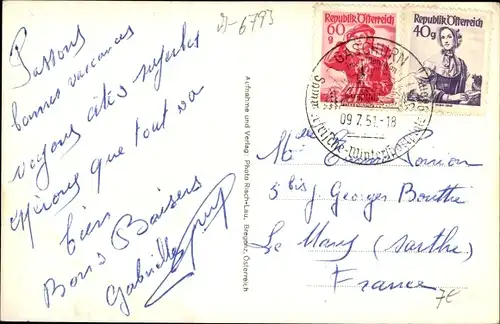 J-6793
Passons
bonnes vacances
voyons sites superbes
espérons que tout va
bien
Bons Baisers
Gabrielle
Aufnahme und Verlag: Photo Risch-Lau, Bregenz, Österreich
Republik Österreich
60
g
Republik Österreich
40g
GASCHURN
09.7.51.-18
5 bis r. Georges Bouttié
Le Mans (Sarthe)
France
7€